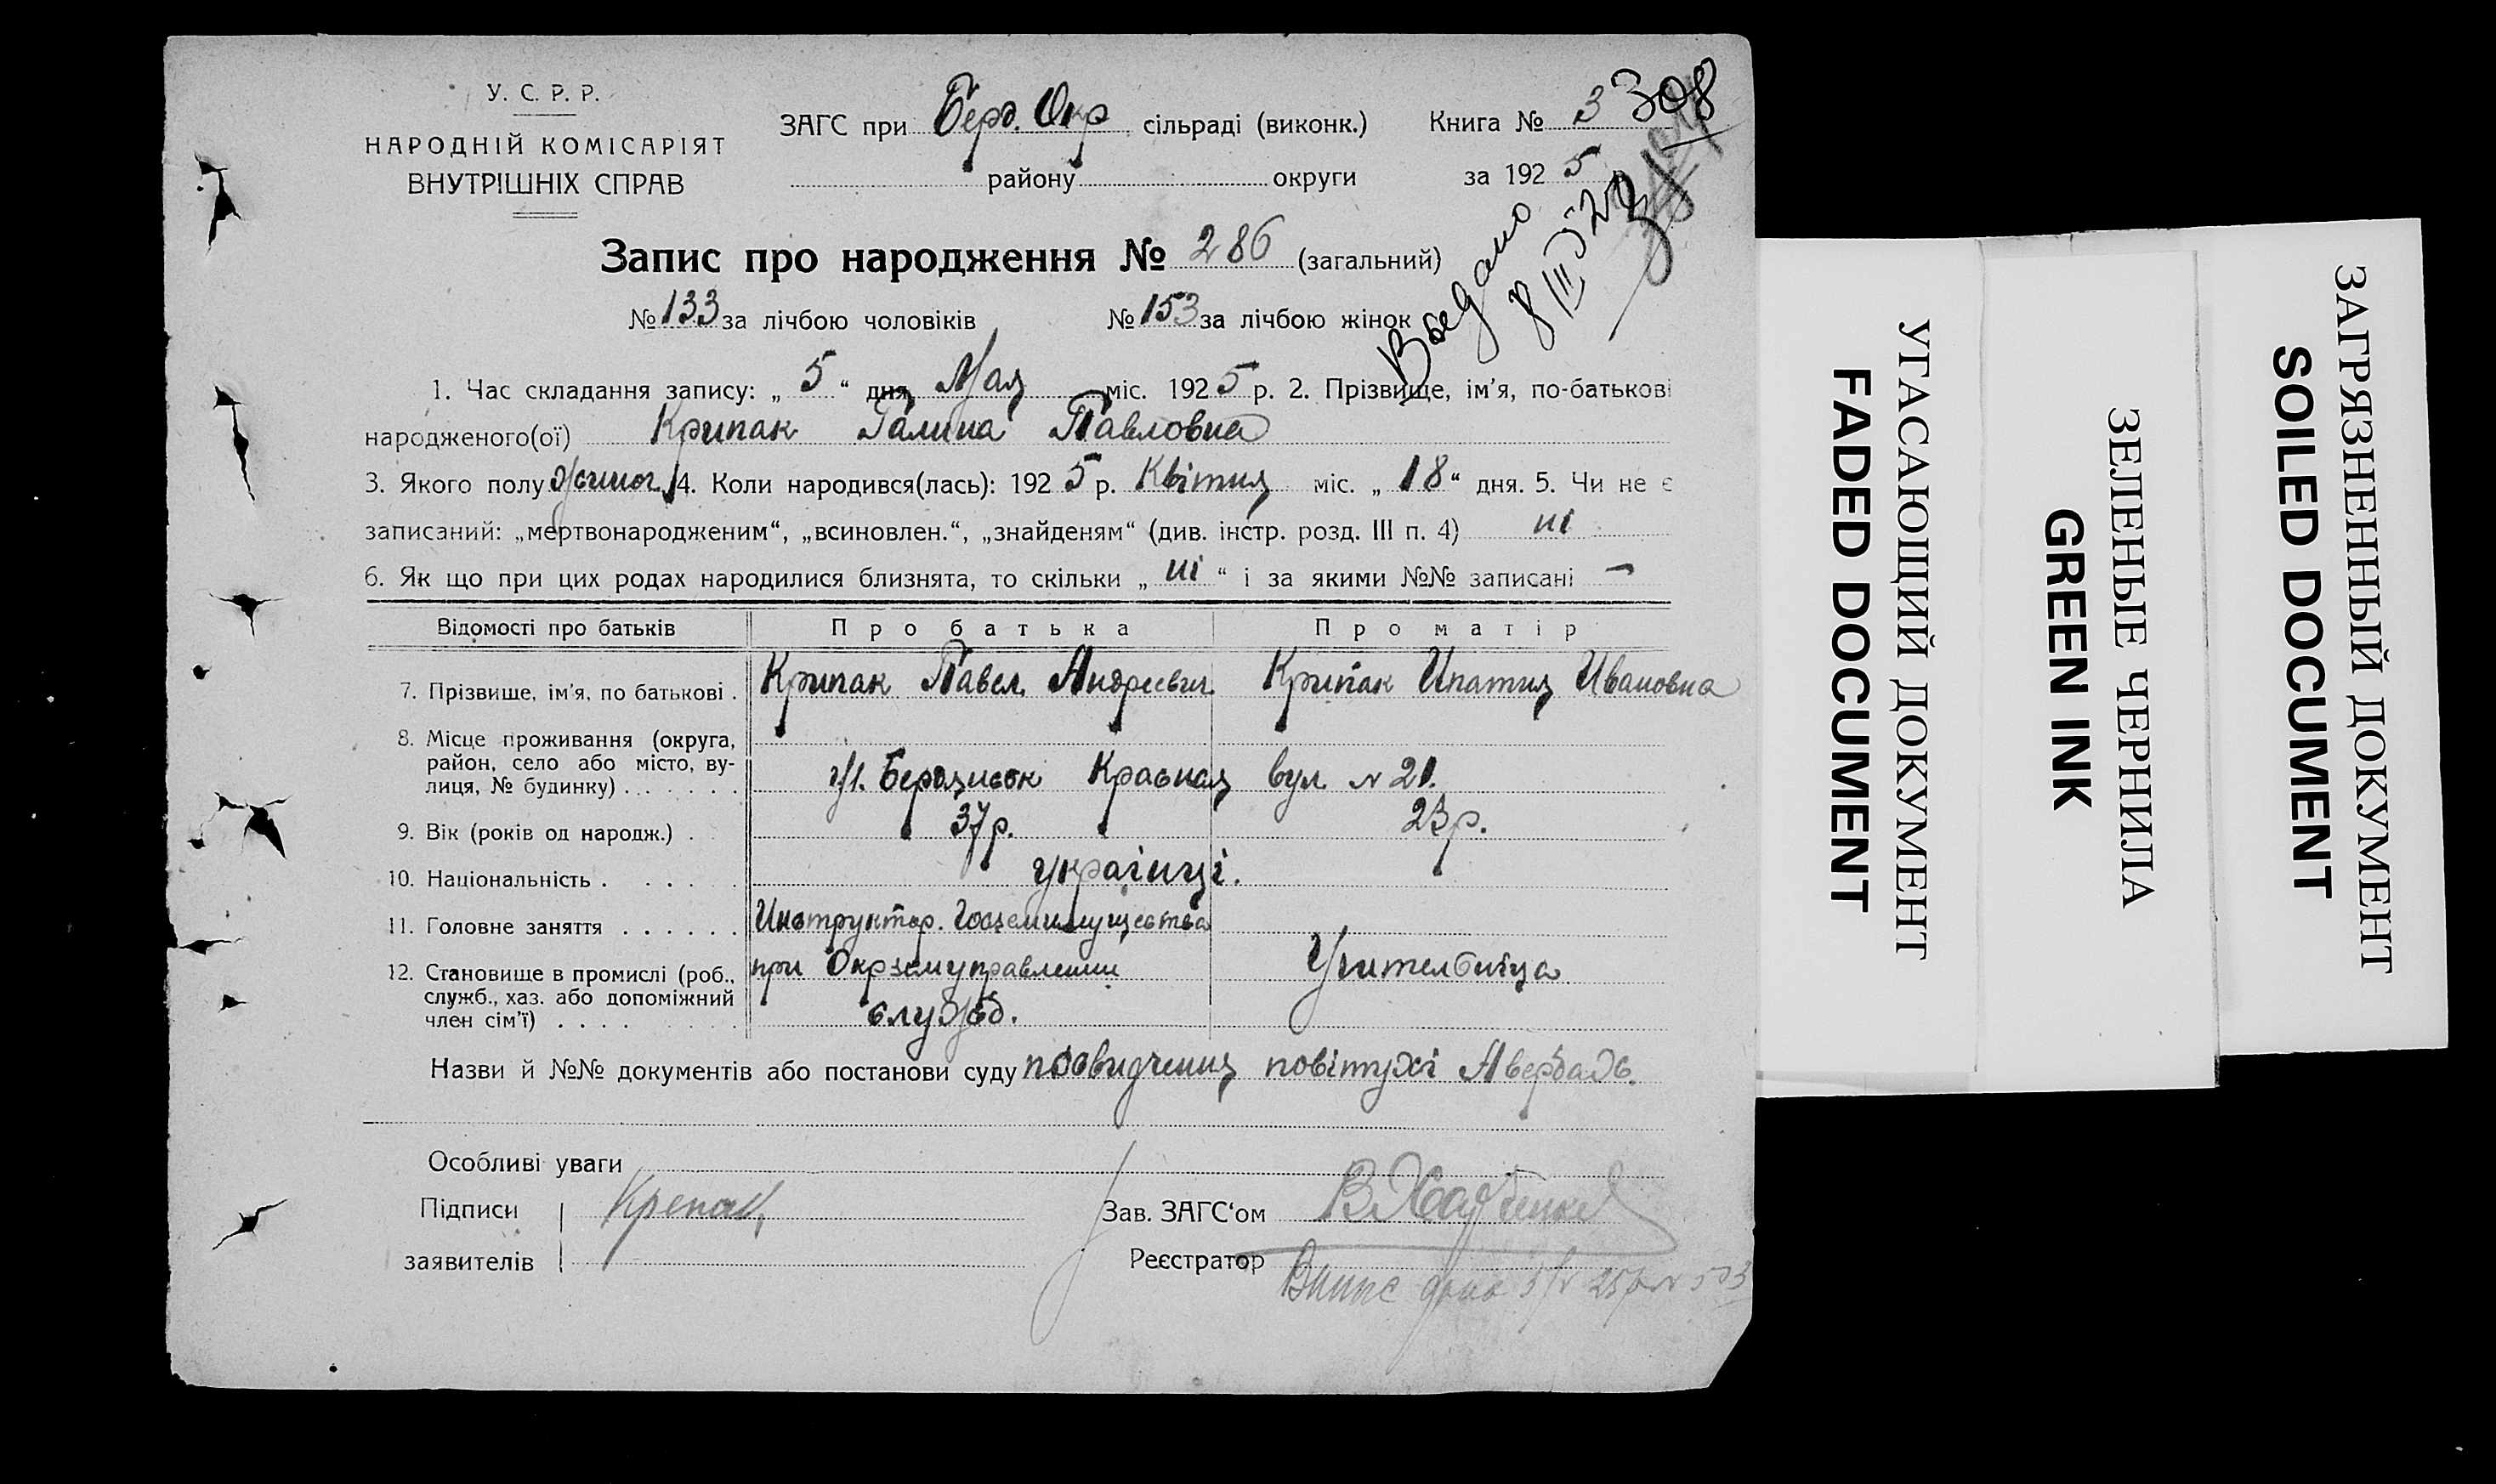 У. С. Р. Р.
НАРОДНІЙ КОМІСАРІЯТ
ВНУТРІШНІХ СПРАВ
ЗАГС при Берд. Окр сільраді (виконк.) Книга № 3 308
району округи за 1925
Запис про народження № 286 (загальний)
№ 133 за лічбою чоловіків № 153 за лічбою жінок
1. Час складання запису: „ 5 “ дня Мая міс. 1925 р. 2. Прізвище, ім'я, по-батькові
народженого(ої) Крипак Галина Павловна
3. Якого полу жиноч. 4. Коли народився(лась): 1925 р. Квітня міс. „ 18 “ дня. 5. Чи не є
записаний: „мертвонародженим“, „всиновлен.“, „знайденям“ (див. інстр. розд. III п. 4) ні
6. Як що при цих родах народилися близнята, то скільки „ ні “ і за якими №№ записані —
Відомості про батьків Про батька Про матір
7. Прізвище, ім'я, по батькові . Крипак Павел Андреевич Крипак Ипатия Ивановна
8. Місце проживання (округа,
район, село або місто, ву-
лиця, № будинку) . . . . . . м. Бердичев Красная вул. № 21.
9. Вік (років од народж.) . 37 р. 23 р.
10. Національність . . . . . українці.
11. Головне заняття . . . . . . Инструктор. Госземимущества
12. Становище в промислі (роб., при Окрземуправлении Учителбница
служб., хаз. або допоміжний
член сім'ї) . . . . служб.
Назви й №№ документів або постанови суду посвидчення повітухі Авербах.
Особливі уваги
Підписи Крепак Зав. ЗАГС'ом
заявителів Реєстратор
УГАСАЮЩИЙ ДОКУМЕНТ
FADED DOCUMENT
ЗЕЛЕНЫЕ ЧЕРНИЛА
GREEN INK
ЗАГРЯЗНЕННЫЙ ДОКУМЕНТ
SOILED DOCUMENT